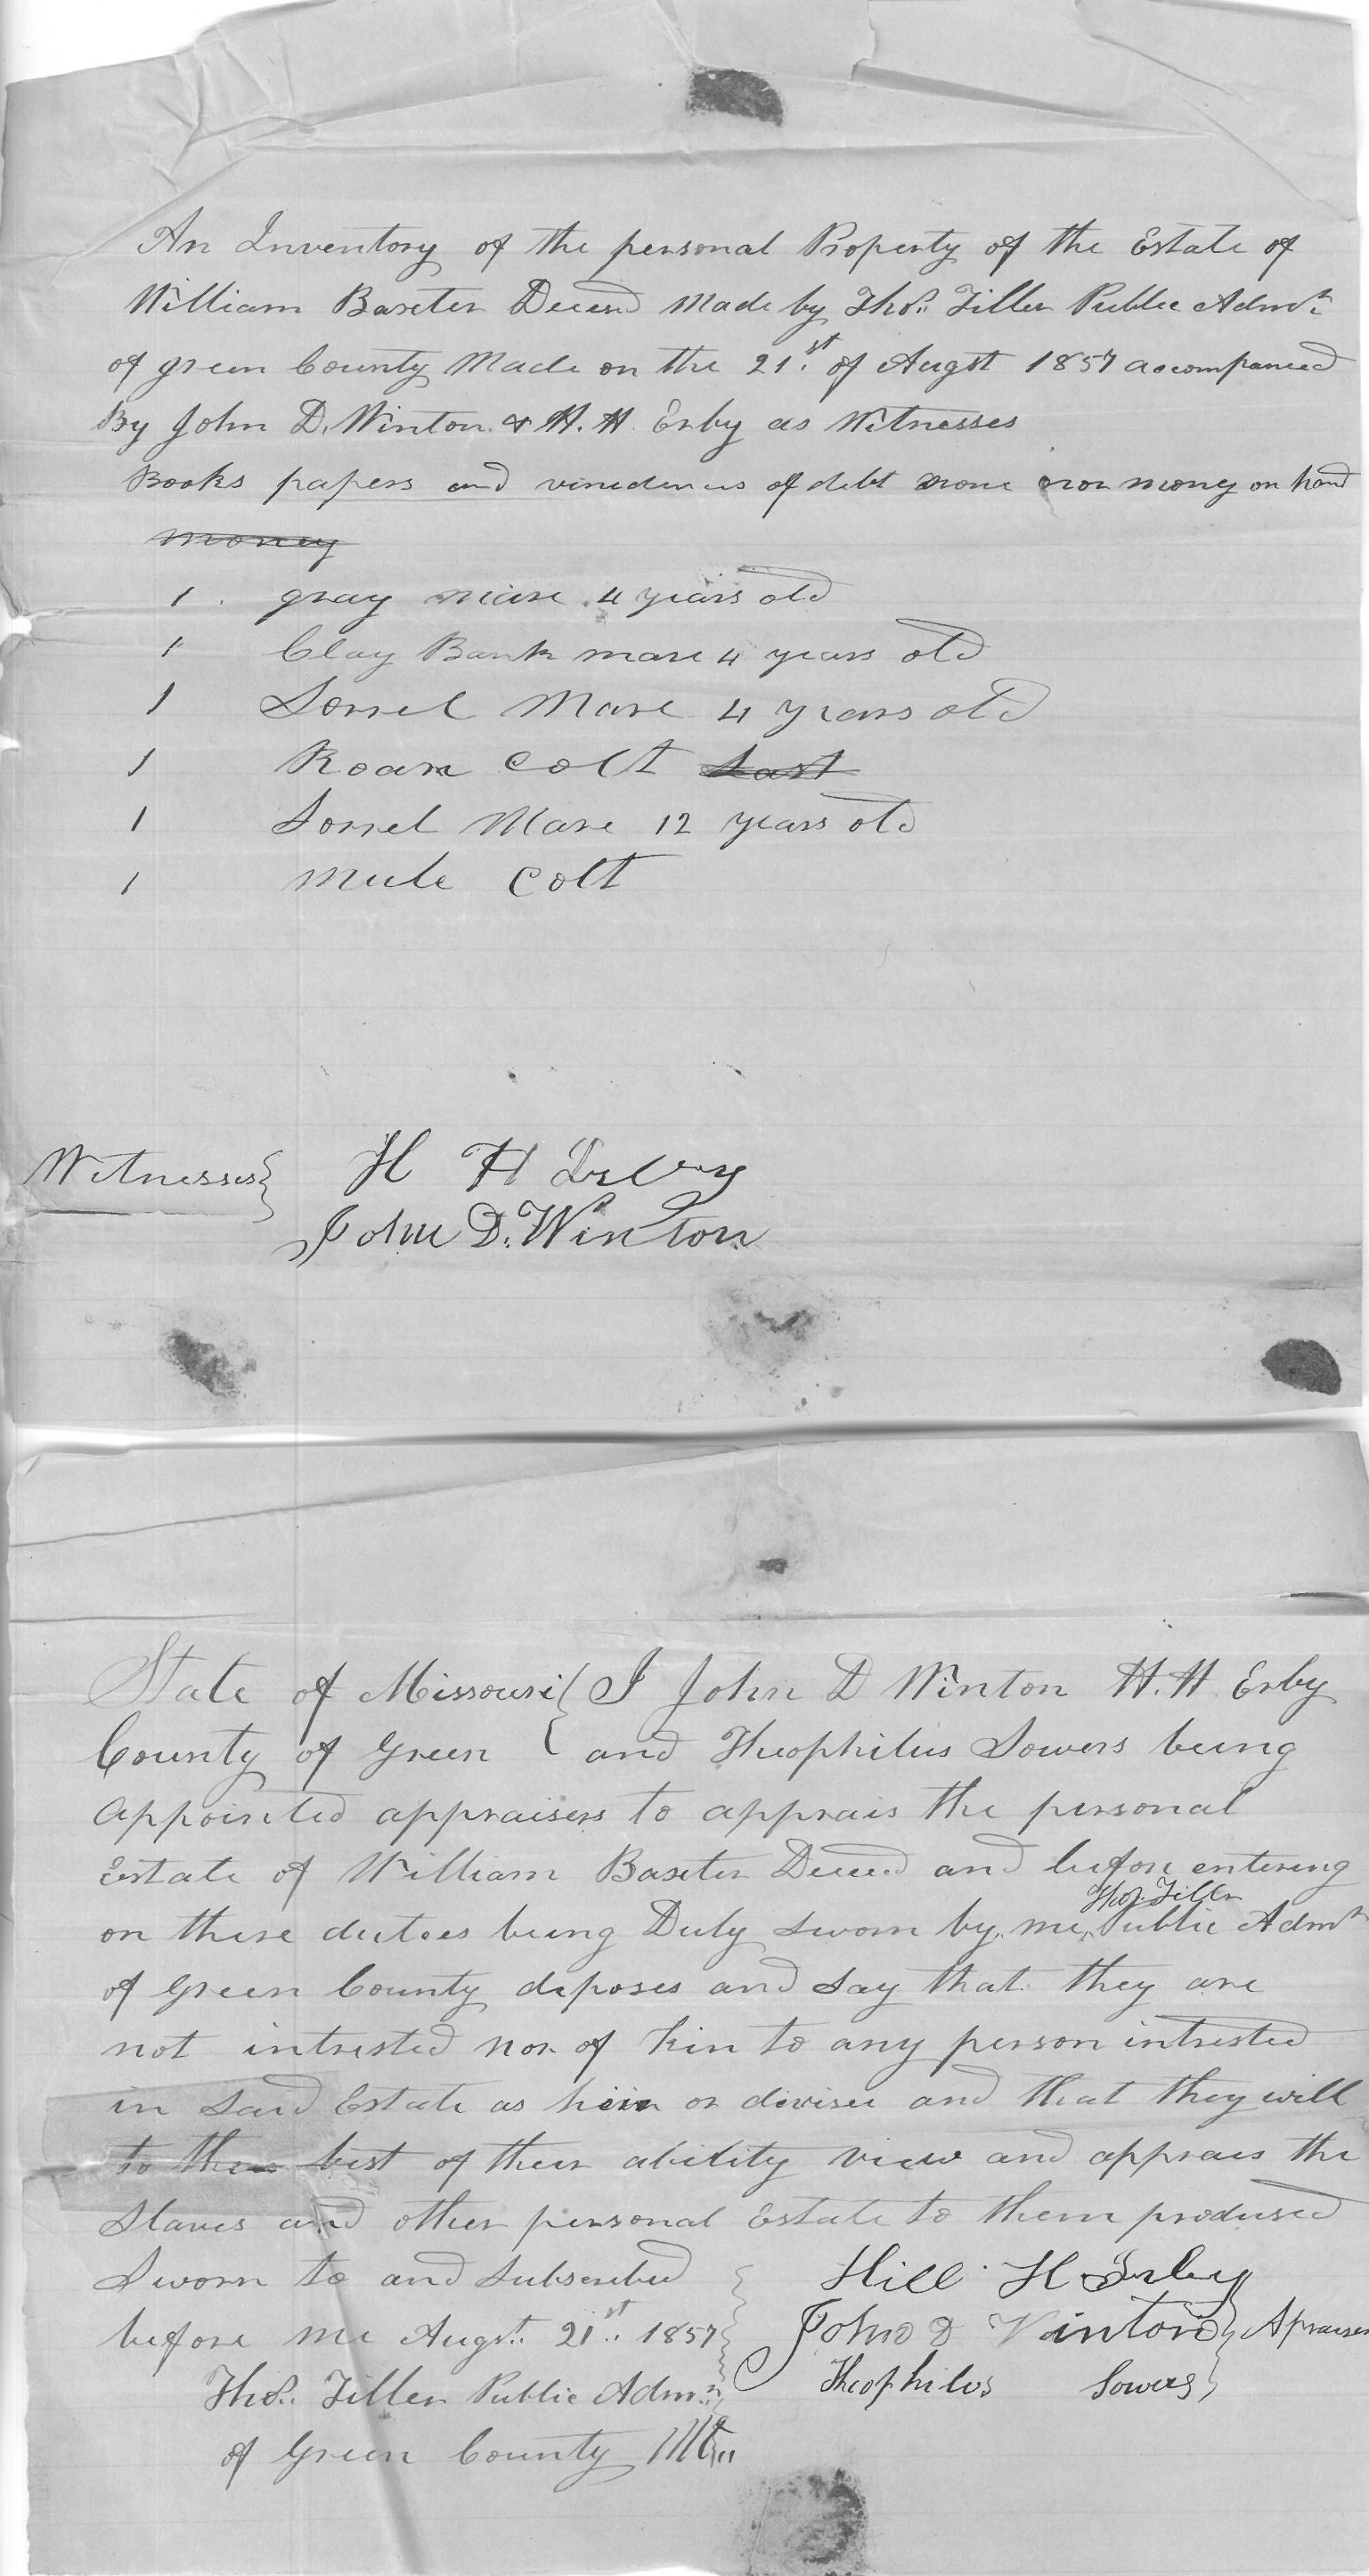 An Inventory of the personal Property of the Estate of
William Baxter Decesd Made by Thos. Tiller Public Admr
of green County Made on the 21st of Augst 1857 accompanied
By John D. Winton & H. H. Erby as Witnesses
Books papers and of debt none nor money on hand
money
1 gray mare 4 years old
1 Clay Bank mare 4 years old
1 Sorrel Mare 4 years old
1 Roan colt Last
1 Sorrel Mare 12 years old
1 mule colt
Witnesses H H Irby
John D. Winton
State of Missouri I John D Winton H. H. Erby
County of Green and Theophilus Sowers being
appointed appraisers to apprais the personal
Estate of William Baxter Deceed and before entering
Thos. Tiller
on there duties being Duly sworn by me, Public Admr
of Green County deposes and say that they are
not intrested nor of kin to any person intrested
in said Estate as heir or devisee and that they will
to the best of their ability view and apprais the
Slaves and other personal Estate to them prodused
Sworn to and subscribed Hill H Irby
before me Augst. 21st. 1857 John D Winton Apraisers
Thos. Tiller Public Admr. Theophilos Sowers
of Green County Mo